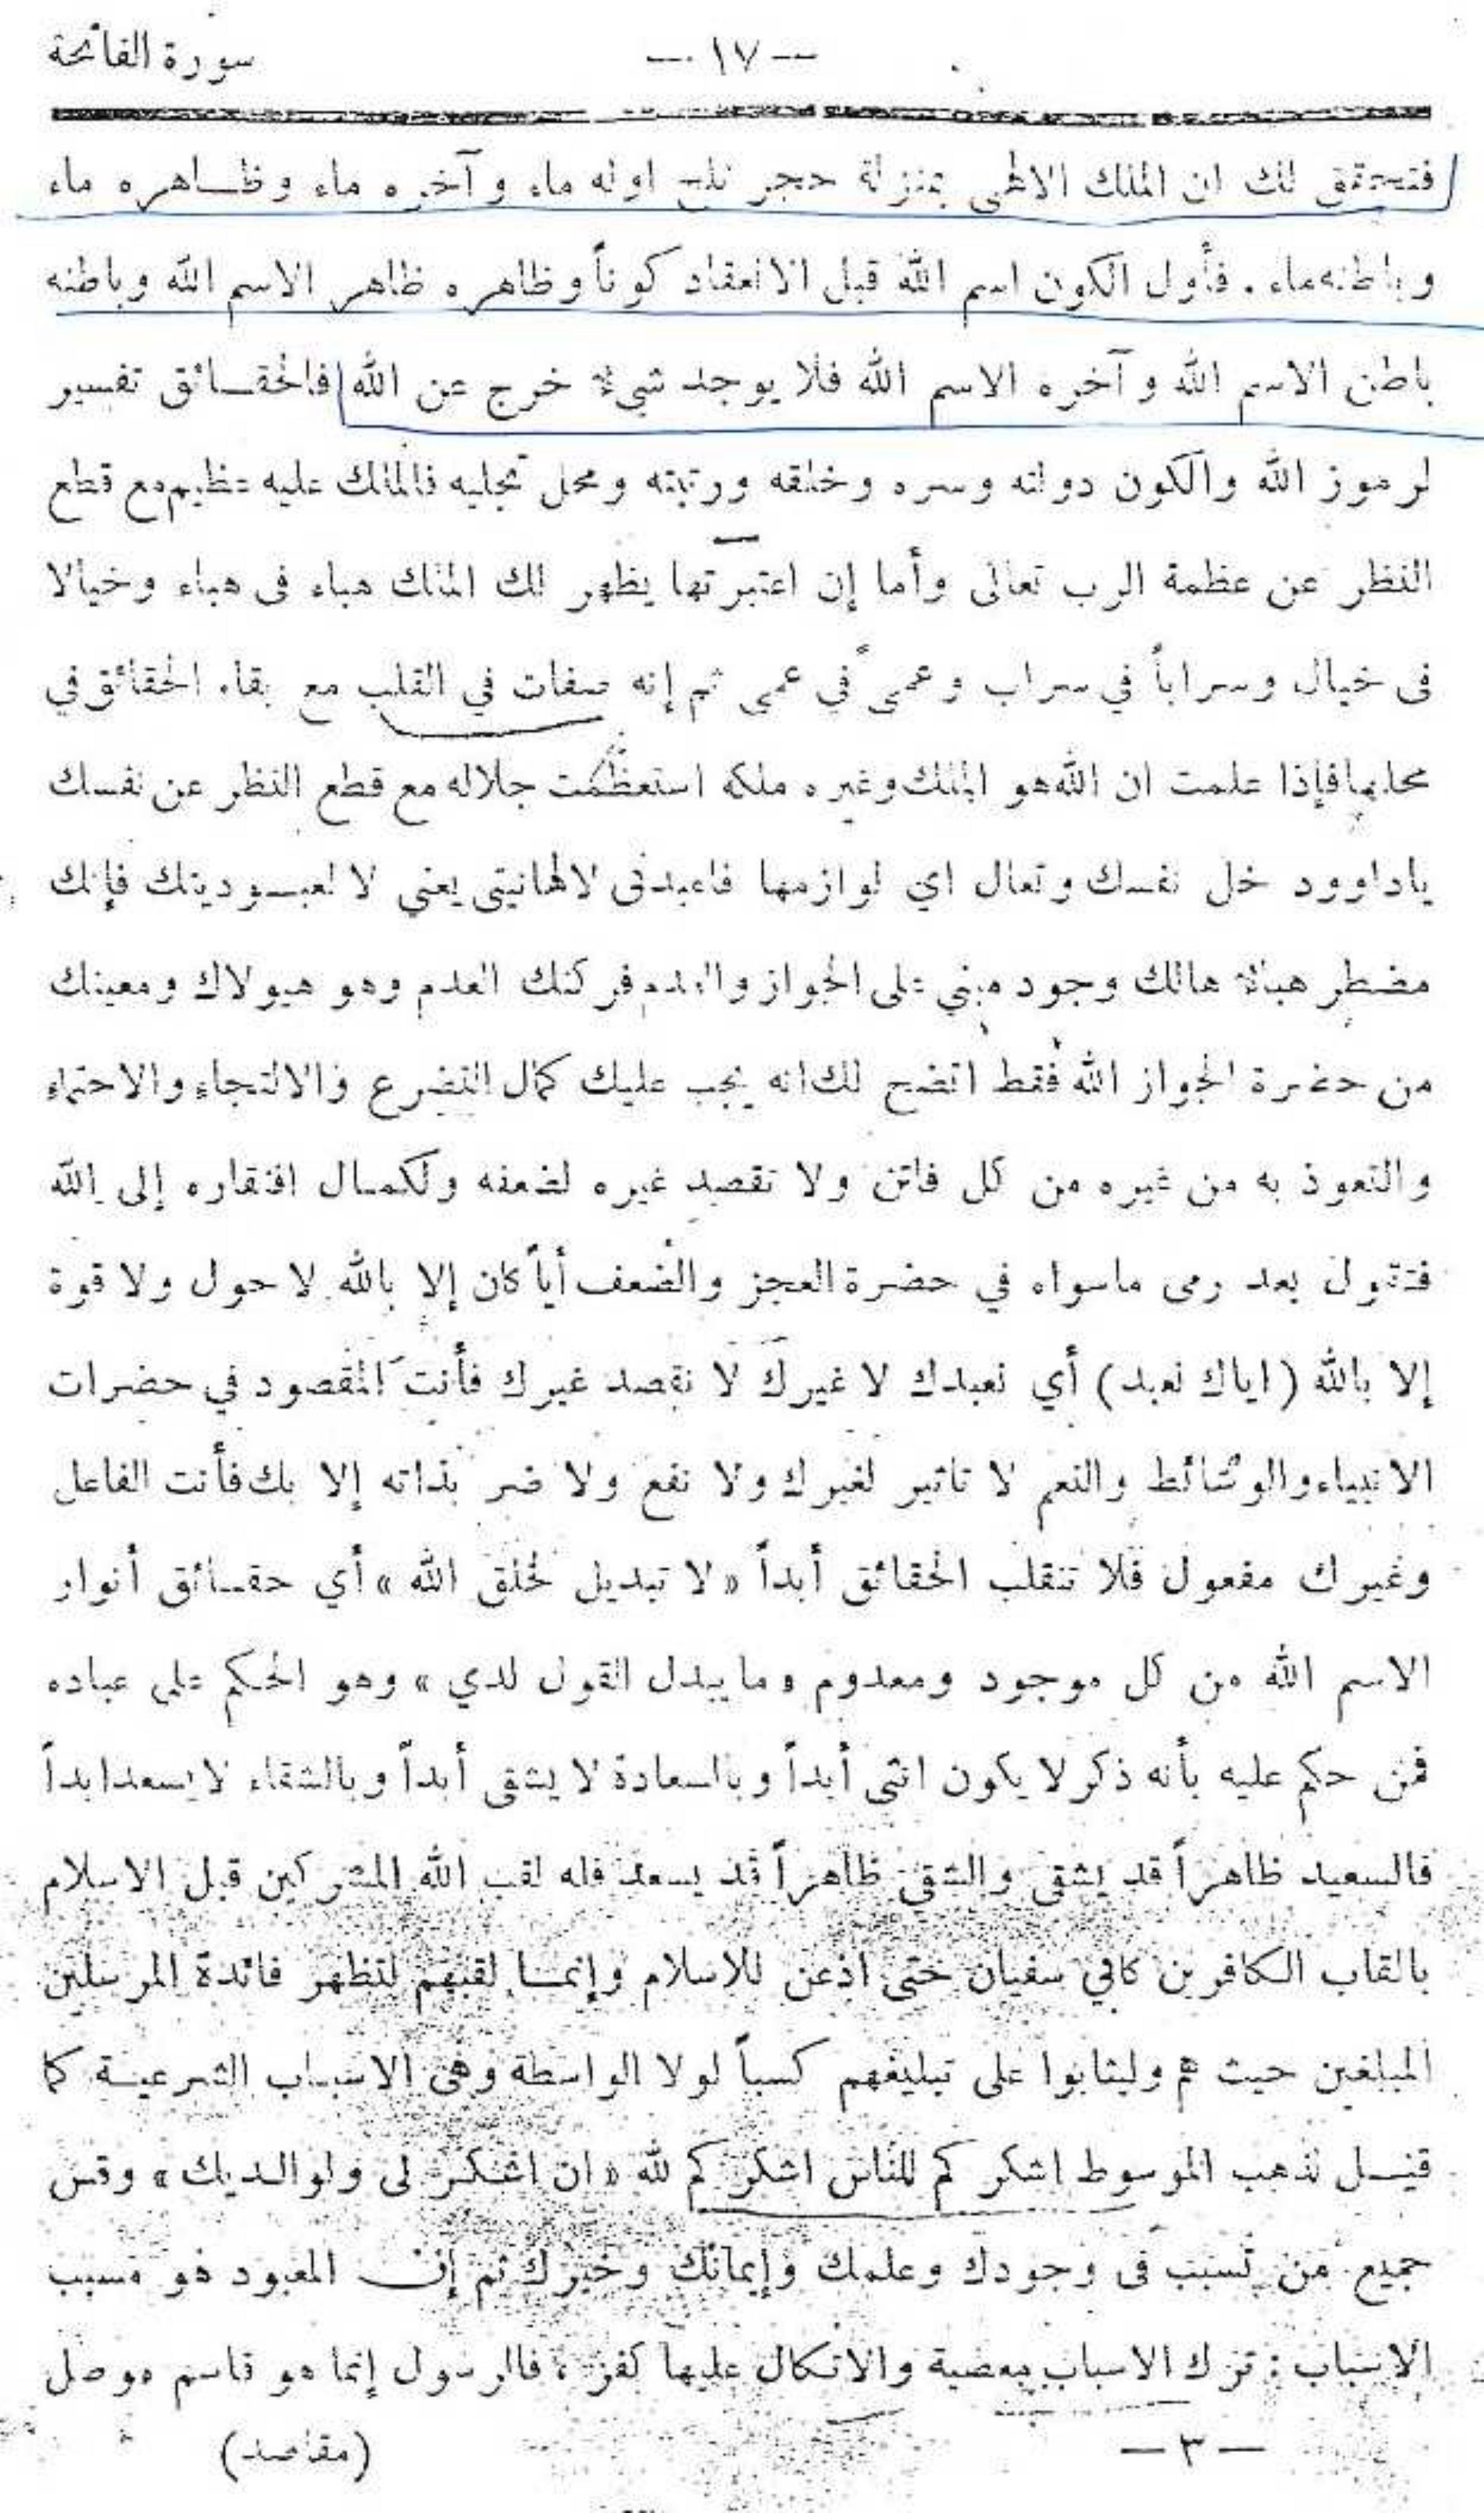 سورة الفاتحة — ١٧ —
فتحقق لك ان الملك الالهى بمنزلة حجر ثلج اوله ماء وآخره ماء وظاهره ماء
وباطنه ماء . فأول الكون اسم الله قبل الانعقاد كوناً وظاهره ظاهر الاسم الله وباطنه
باطن الاسم الله وآخره الاسم الله فلا يوجد شيء خرج عن الله فالحقائق تفسير
لرموز الله والكون دولته وسره وخلقه ورتبته ومحل تجليه فالملك عليه عظيم مع قطع
النظر عن عظمة الرب تعالى وأما إن اعتبرتها يظهر لك الملك هباء فى هباء وخيالا
فى خيال وسراباً في سراب وعمى في عمى ثم إنه صفات في القلب مع بقاء الحقائق في
محلها فإذا علمت ان الله هو الملك وغيره ملكه استعظمت جلاله مع قطع النظر عن نفسك
ياداوود خل نفسك وتعال اي لوازمها فاعبدنى لالهانيتى يعني لا لعبوديتك فإنك
مضطر هباء هالك وجود مبني على الجواز والعدم فركنك العدم وهو هيولاك ومعينك
من حضرة الجواز الله فقط اتضح لك انه يجب عليك كمال التضرع والالتجاء والاحتماء
والتعوذ به من غيره من كل فاتن ولا تقصد غيره لضعفه ولكمال افتقاره إلى الله
فتقول بعد رمى ماسواه في حضرة العجز والضعف أياً كان إلا بالله لا حول ولا قوة
إلا بالله (اياك نعبد) أي نعبدك لا غيرك لا نقصد غيرك فأنت المقصود في حضرات
الانبياء والوسائط والنعم لا تاثير لغيرك ولا نفع ولا ضر بذاته إلا بك فأنت الفاعل
وغيرك مفعول فلا تنقلب الحقائق أبداً « لا تبديل لخلق الله » أي حقائق أنوار
الاسم الله من كل موجود ومعدوم « ما يبدل القول لدي » وهو الحكم على عباده
فمن حكم عليه بأنه ذكر لا يكون انثى أبداً وبالسعادة لا يشقى أبداً وبالشقاء لا يسعد ابداً
فالسعيد ظاهراً قد يشقى والشقى ظاهراً قد يسعد فله لقب الله المشركين قبل الاسلام
بالقاب الكافرين كابي سفيان حتى اذعن للاسلام وإنما لقبهم لتظهر فائدة المرسلين
المبلغين حيث هم وليثابوا على تبليغهم كسباً لولا الواسطة وهى الاسباب الشرعية كما
قيل لذهب الموسوط اشكركم للناس اشكركم لله « ان اشكر لى ولوالديك » وقس
جميع من تسبب فى وجودك وعلمك وإيمانك وخيرك ثم إن المعبود هو مسبب
الاسباب : ترك الاسباب معصية والاتكال عليها كفر ، فالرسول إنما هو قاسم موصل
— ٣ — (مقاصد)